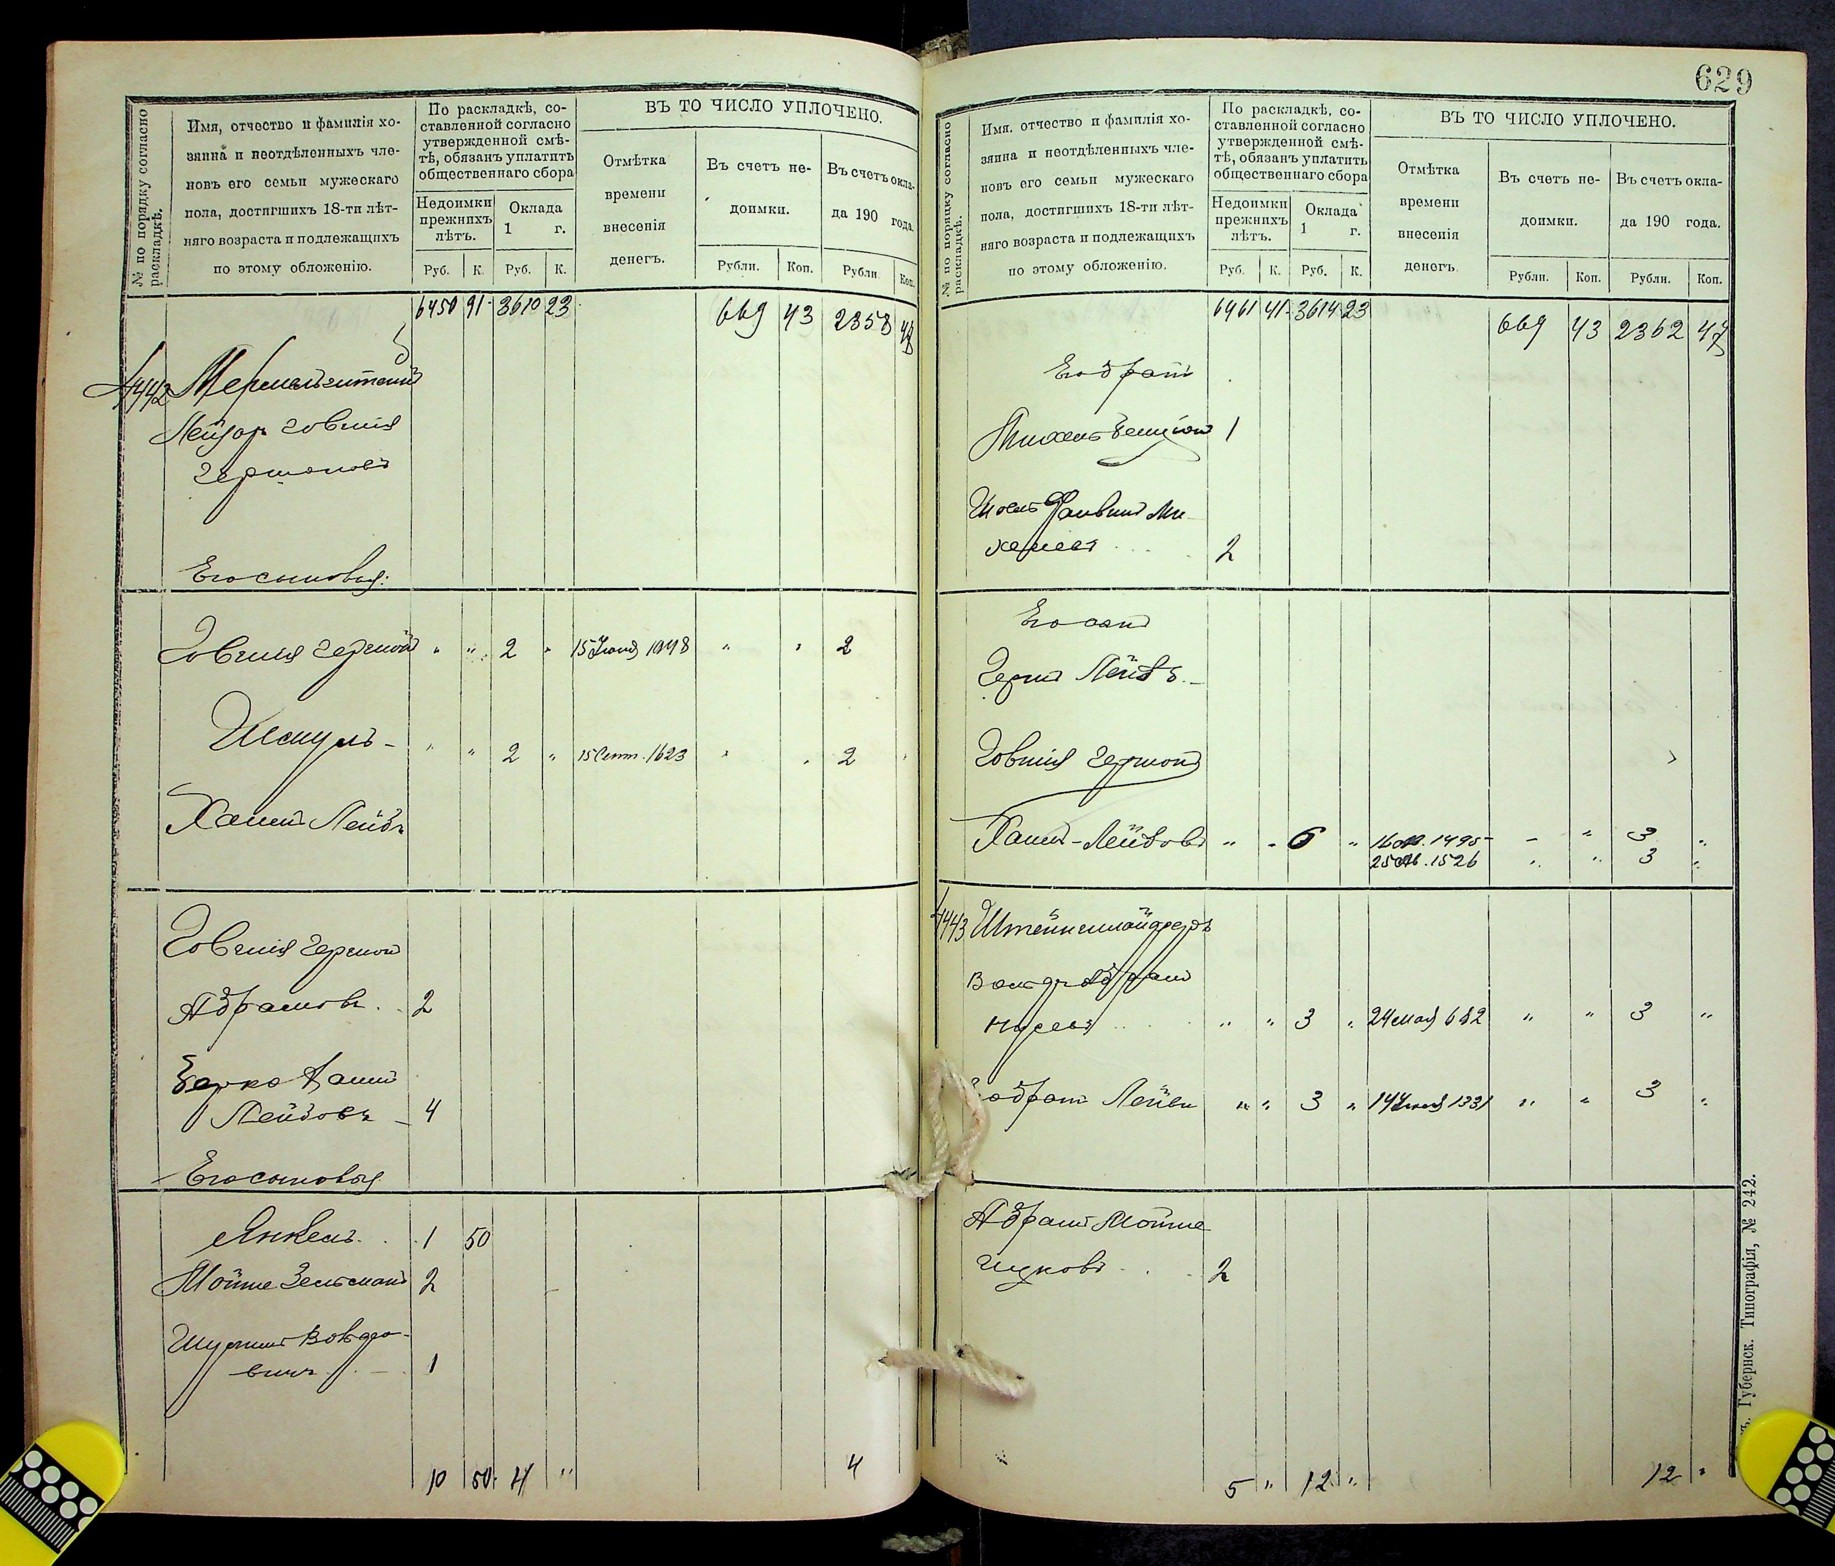 629
№ по порядку согласно раскладкѣ.
Имя, отчество и фамилія хо-
зяина и неотдѣленныхъ чле-
новъ его семьи мужескаго
пола, достигшихъ 18-ти лѣт-
няго возраста и подлежащихъ
по этому обложенію.
По раскладкѣ, со-
ставленной согласно
утвержденной смѣ-
тѣ, обязанъ уплатить
общественнаго сбора
Недоимки
прежнихъ
лѣтъ.
Оклада
1 г.
Руб. К. Руб. К.
ВЪ ТО ЧИСЛО УПЛОЧЕНО.
Отмѣтка
времени
внесенія
денегъ.
Въ счетъ не-
доимки.
Въ счетъ окла-
да 190 года.
Рубли. Коп. Рубли Коп.
6450 91 3610 23 669 43 2358 48
4442
Лейзоръ Говшія
Гершоновъ
Его сыновья:
Говшія Гершонъ " " 2 " 15 Іюня 1098 " " 2
Шмуль - " " 2 " 15 Сент. 1623 " " 2
Хаимъ Лейбъ
Говшія Гершонъ
Абрамовъ 2
Берко Хаимъ
Лейбовъ 4
Его сыновья
Янкель 1 50
Мойше Зельманъ 2
1
10 50 4 " 4
№ по порядку согласно раскладкѣ.
Имя, отчество и фамилія хо-
зяина и неотдѣленныхъ чле-
новъ его семьи мужескаго
пола, достигшихъ 18-ти лѣт-
няго возраста и подлежащихъ
по этому обложенію.
По раскладкѣ, со-
ставленной согласно
утвержденной смѣ-
тѣ, обязанъ уплатить
общественнаго сбора
Недоимки
прежнихъ
лѣтъ.
Оклада
1 г.
Руб. К. Руб. К.
ВЪ ТО ЧИСЛО УПЛОЧЕНО.
Отмѣтка
времени
внесенія
денегъ.
Въ счетъ не-
доимки.
Въ счетъ окла-
да 190 года.
Рубли. Коп. Рубли. Коп.
6461 41 3614 23 669 43 2362 47
Его братъ
1
Михелевъ 2
Его сынъ
Герцъ Лейбъ
Говшія Гершонъ
Хаимъ-Лейбовъ " " 6 " 1495 - " 3 "
1526 " " 3 "
4443 Штейншнайдеръ
" " 3 " 24 мая 682 " " 3 "
братъ Лейби " " 3 " 14 1331 " " 3 "
Абрамъ Мойше
Ицковъ 2
5 " 12 " 12 "
Губернск. Типографія, № 242.